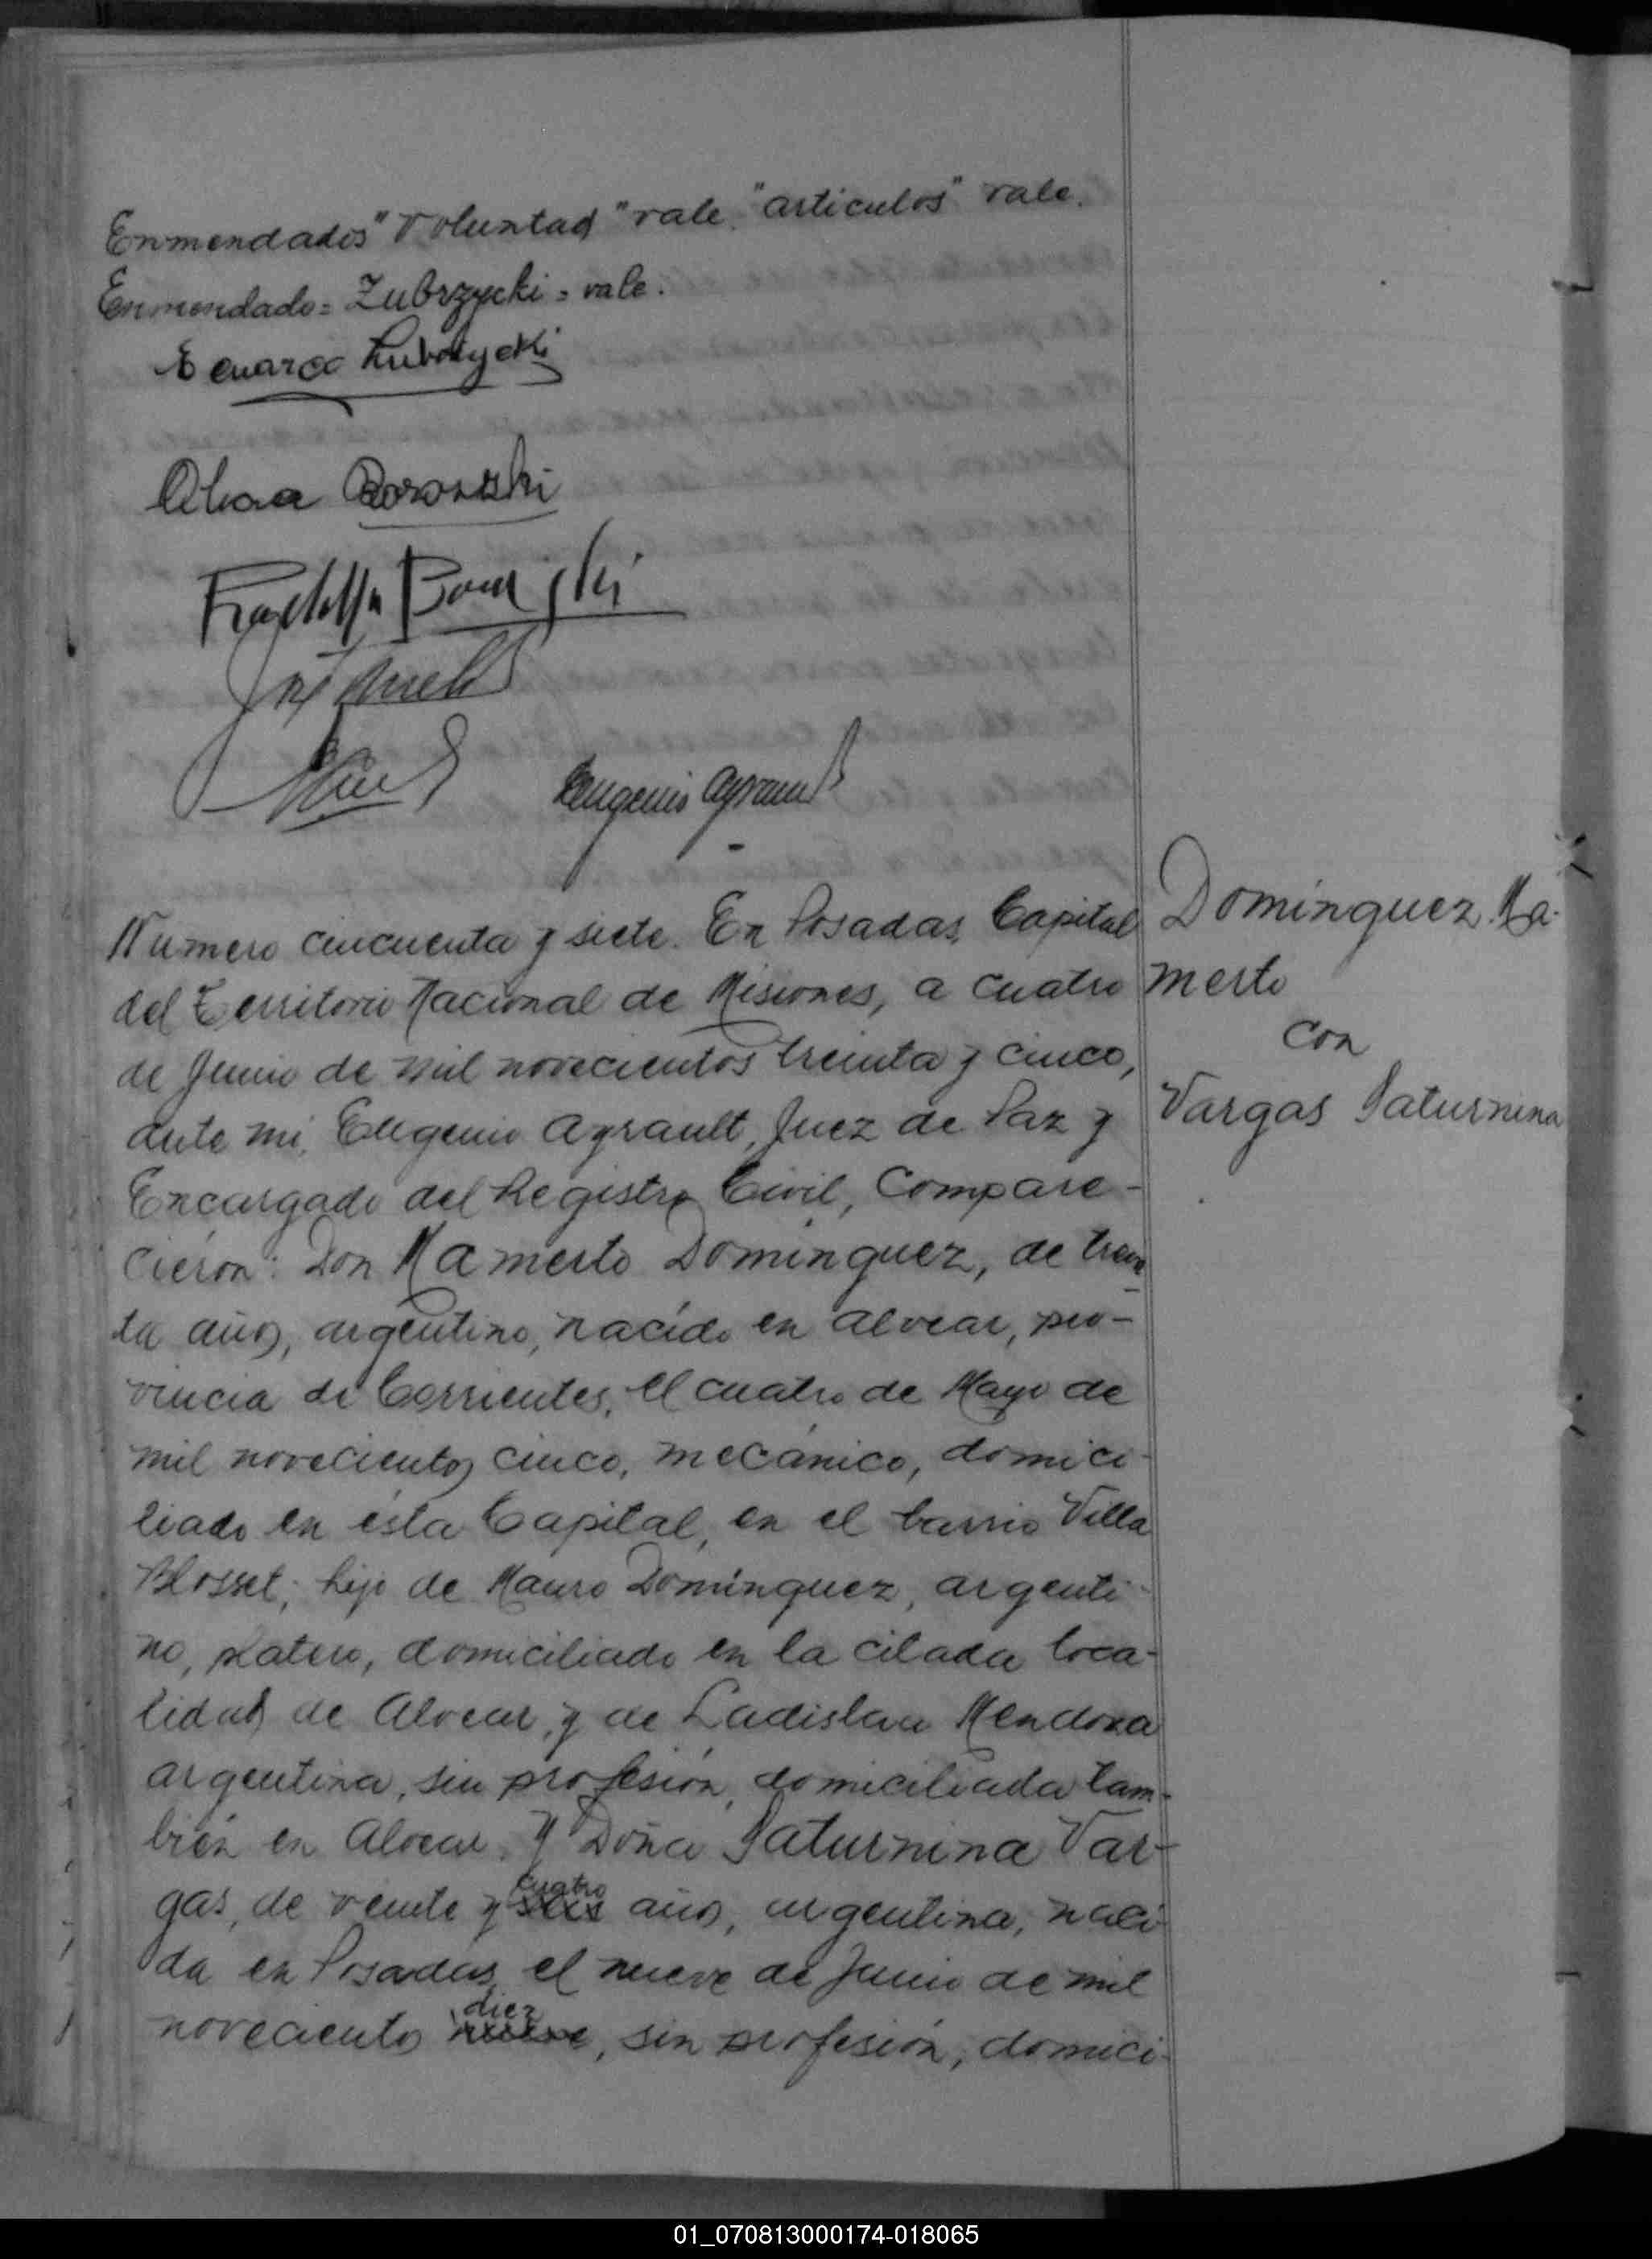 Enmendados "Voluntad" vale. "articulos" vale.
Enmendado = Zubrzycki = vale.
Zubrzycki
Olga Borowski
Borowski
José
Eugenio Ayrault
Numero cincuenta y siete. En Posadas, Capital
del Territorio Nacional de Misiones, a cuatro
de Junio de mil novecientos treinta y cinco,
ante mi, Eugenio Ayrault, Juez de Paz y
Encargado del Registro Civil, Compare-
cieron: Don Mamerto Domínguez, de trein
ta años, argentino, nacido en Alvear, pro-
vincia de Corrientes, el cuatro de Mayo de
mil novecientos cinco, mecánico, domici-
liado en ésta Capital, en el barrio Villa
Blosset; hijo de Mauro Domínguez, argenti-
no, platero, domiciliado en la citada loca-
lidad de Alvear, y de Ladislava Mendoza
argentina, sin profesión, domiciliada tam-
bién en Alvear. Y Doña Saturnina Var-
gas, de veinte y seis cuatro años, argentina, naci-
da en Posadas, el nueve de Junio de mil
novecientos nueve diez, sin profesión, domici-
Domínguez Ma-
merto
con
Vargas Saturnina
01_070813000174-018065